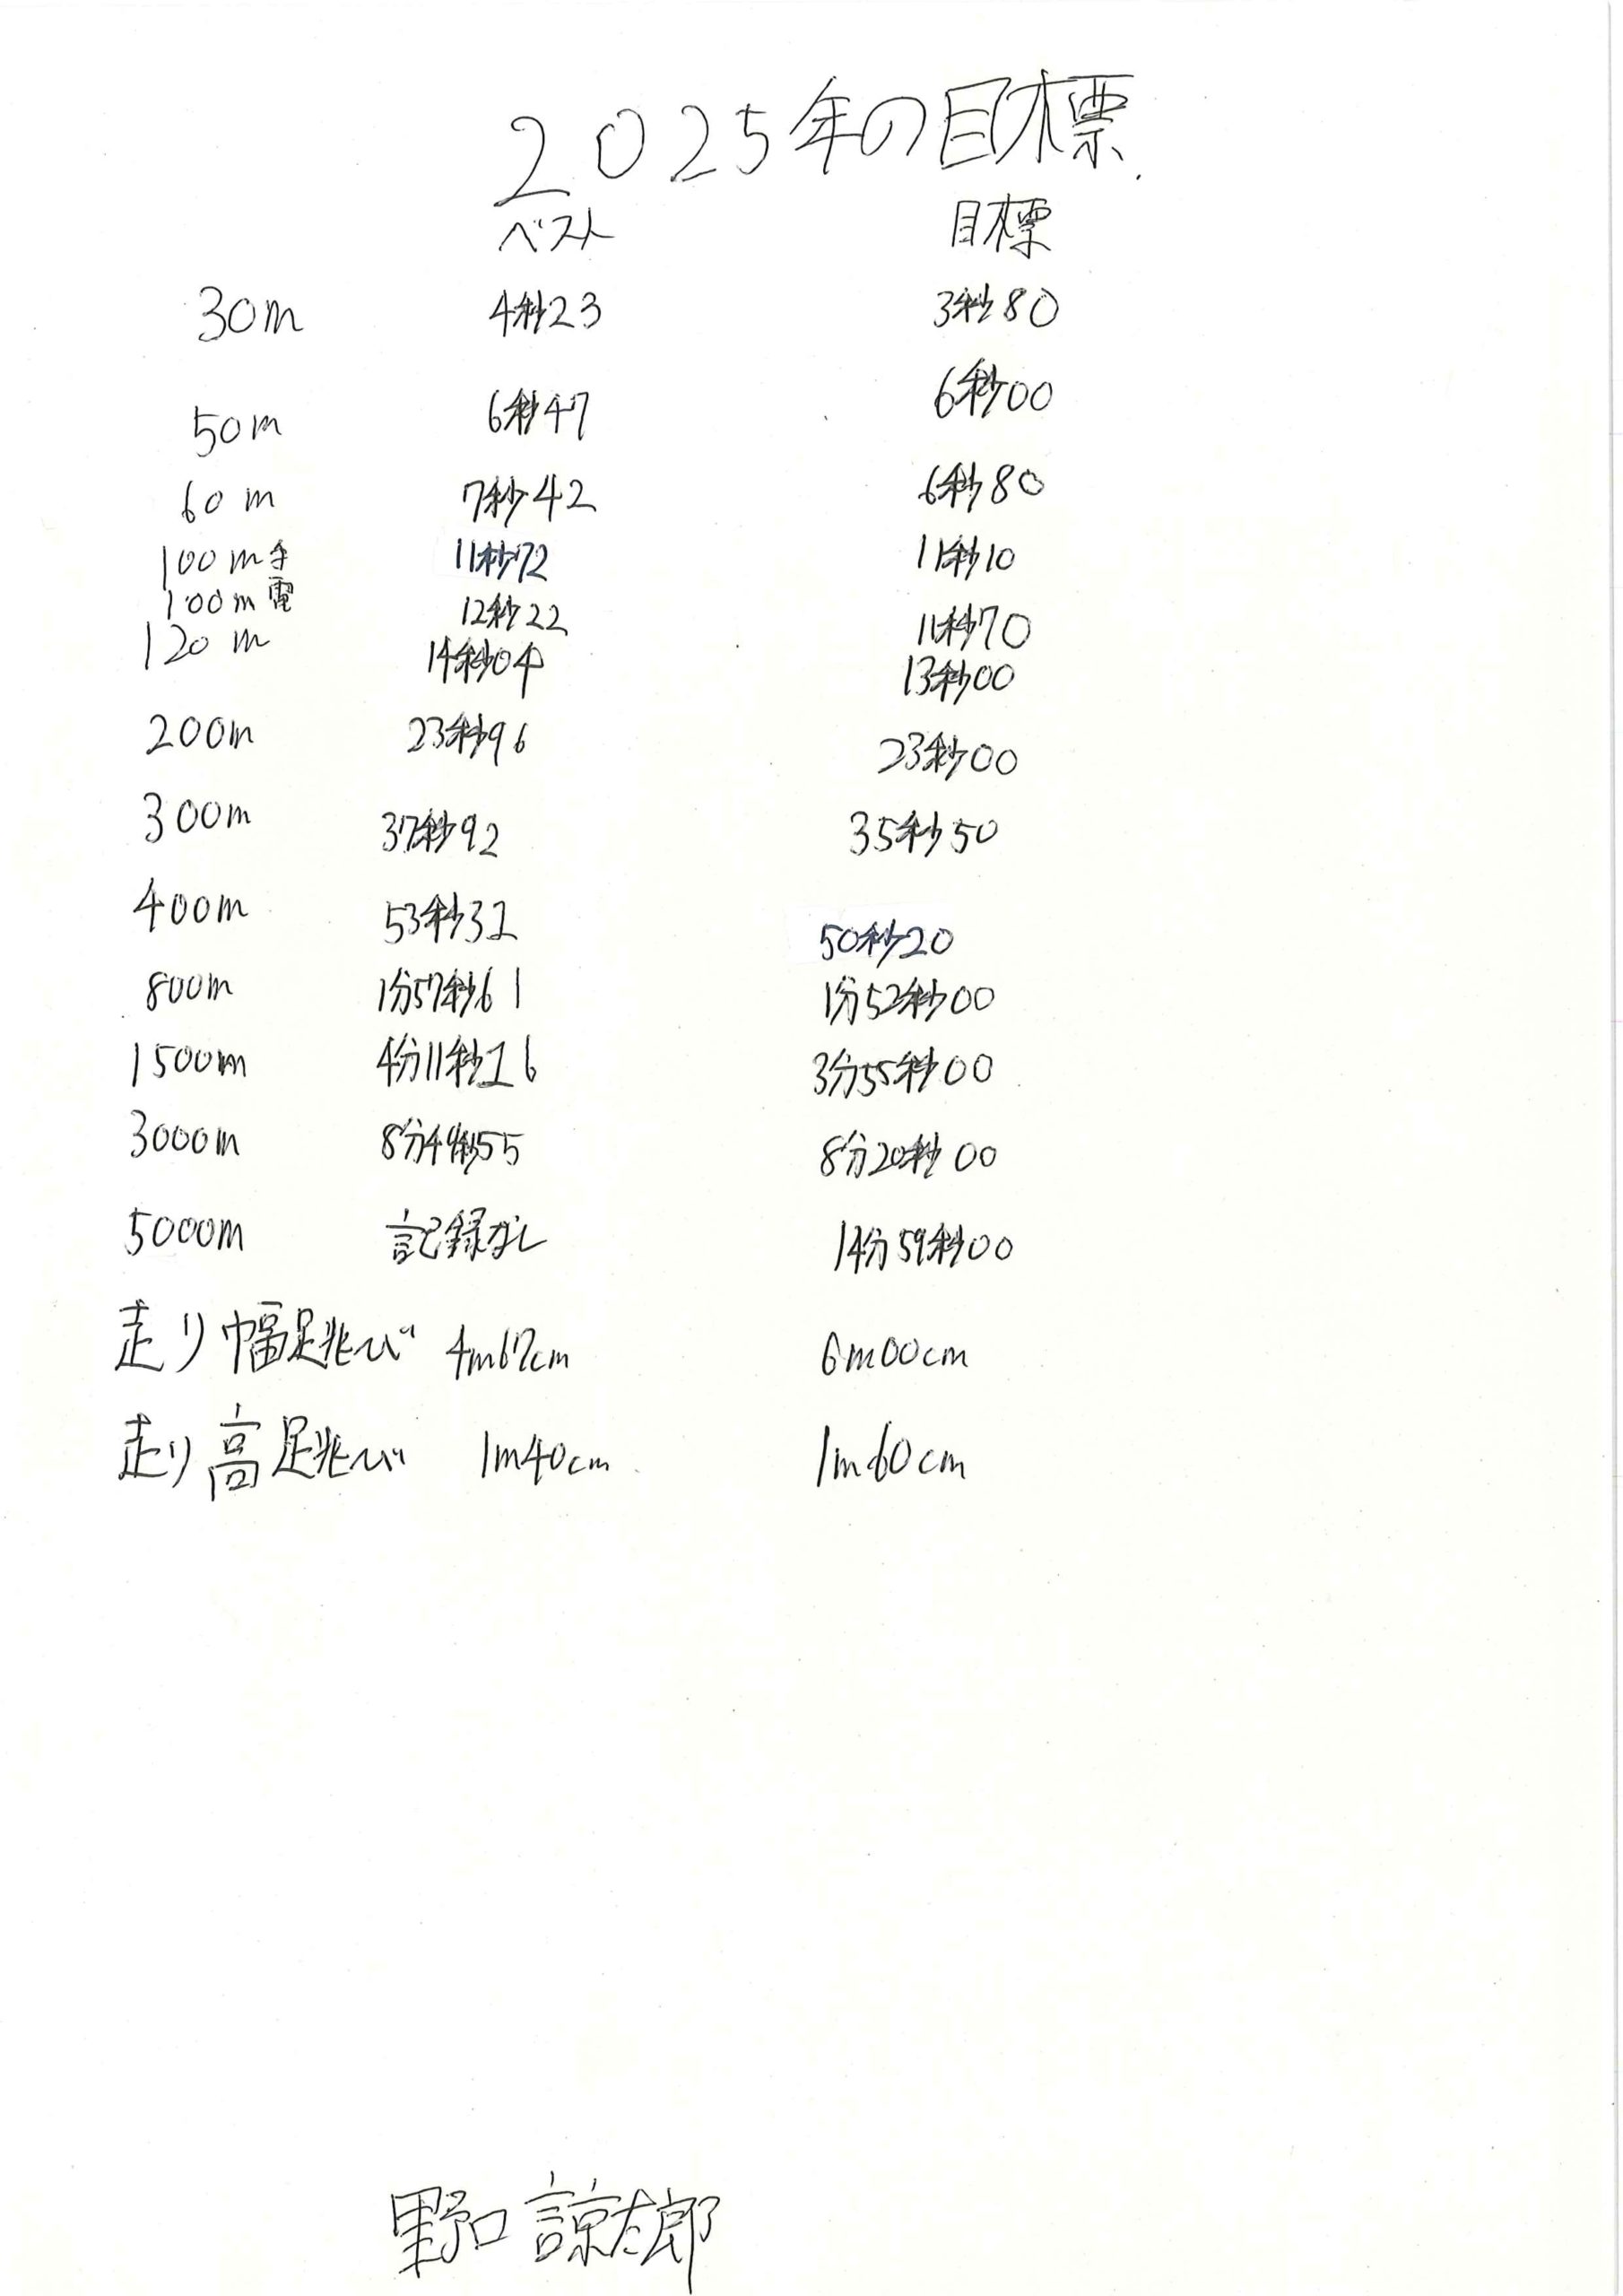 2025年の目標
ベスト 目標
30m 4秒23 3秒80
50m 6秒47 6秒00
60m 7秒42 6秒80
100m手 11秒72 11秒10
100m電 12秒22 11秒70
120m 14秒04 13秒00
200m 23秒96 23秒00
300m 37秒92 35秒50
400m 53秒32 50秒20
800m 1分57秒61 1分52秒00
1500m 4分11秒26 3分55秒00
3000m 8分49秒55 8分20秒00
5000m 記録なし 14分59秒00
走り幅跳び 4m67cm 6m00cm
走り高跳び 1m40cm 1m60cm
野口諒太郎